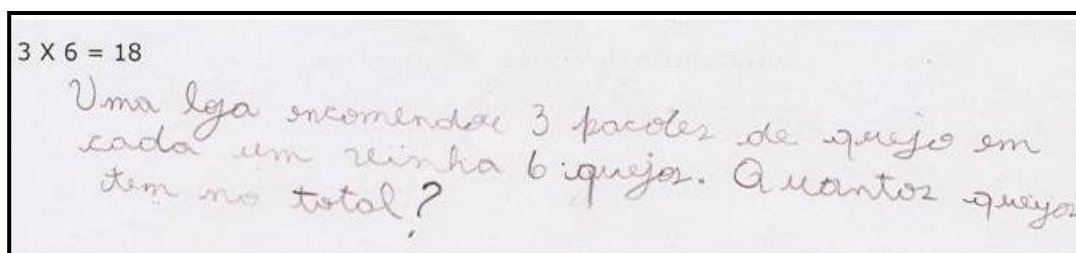 3 X 6 = 18
Uma loja encomendou 3 pacotes de queijo em
cada um veinha 6 queijos. Quantos queijos
tem no total?